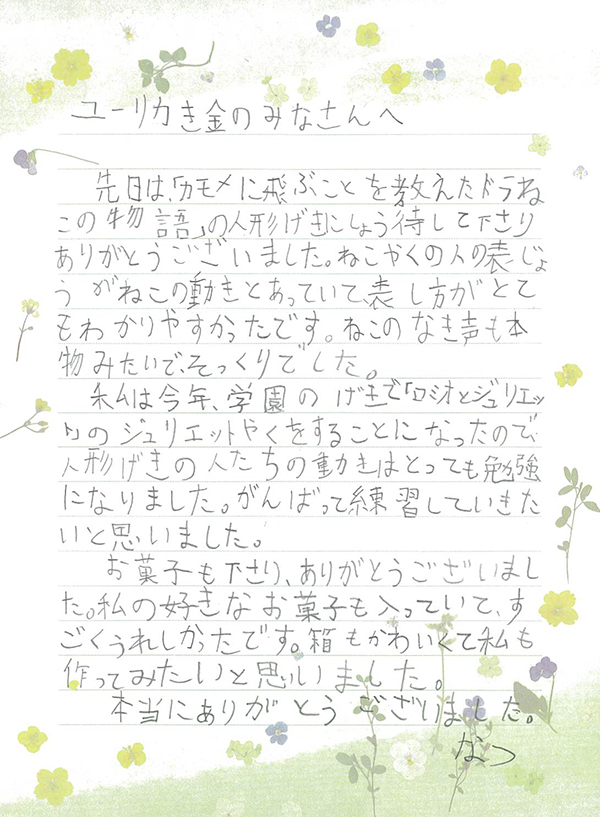 ユーリカき金のみなさんへ
先日は、「カモメに飛ぶことを教えたドラね
この物語」の人形げきにしょう待して下さり
ありがとうございました。ねこやくの人の表じょ
うがねこの動きとあっていて、表し方がとて
もわかりやすかったです。ねこのなき声も本
物みたいで、そっくりでした。
私は今年、学園のげきで「ロミオとジュリエッ
ト」のジュリエットやくをすることになったので、
人形げきの人たちの動きはとっても勉強
になりました。がんばって練習していきた
いと思いました。
お菓子も下さり、ありがとうございまし
た。私の好きなお菓子も入っていて、す
ごくうれしかったです。箱もかわいくて私も
作ってみたいと思いました。
本当にありがとうございました。
なつ